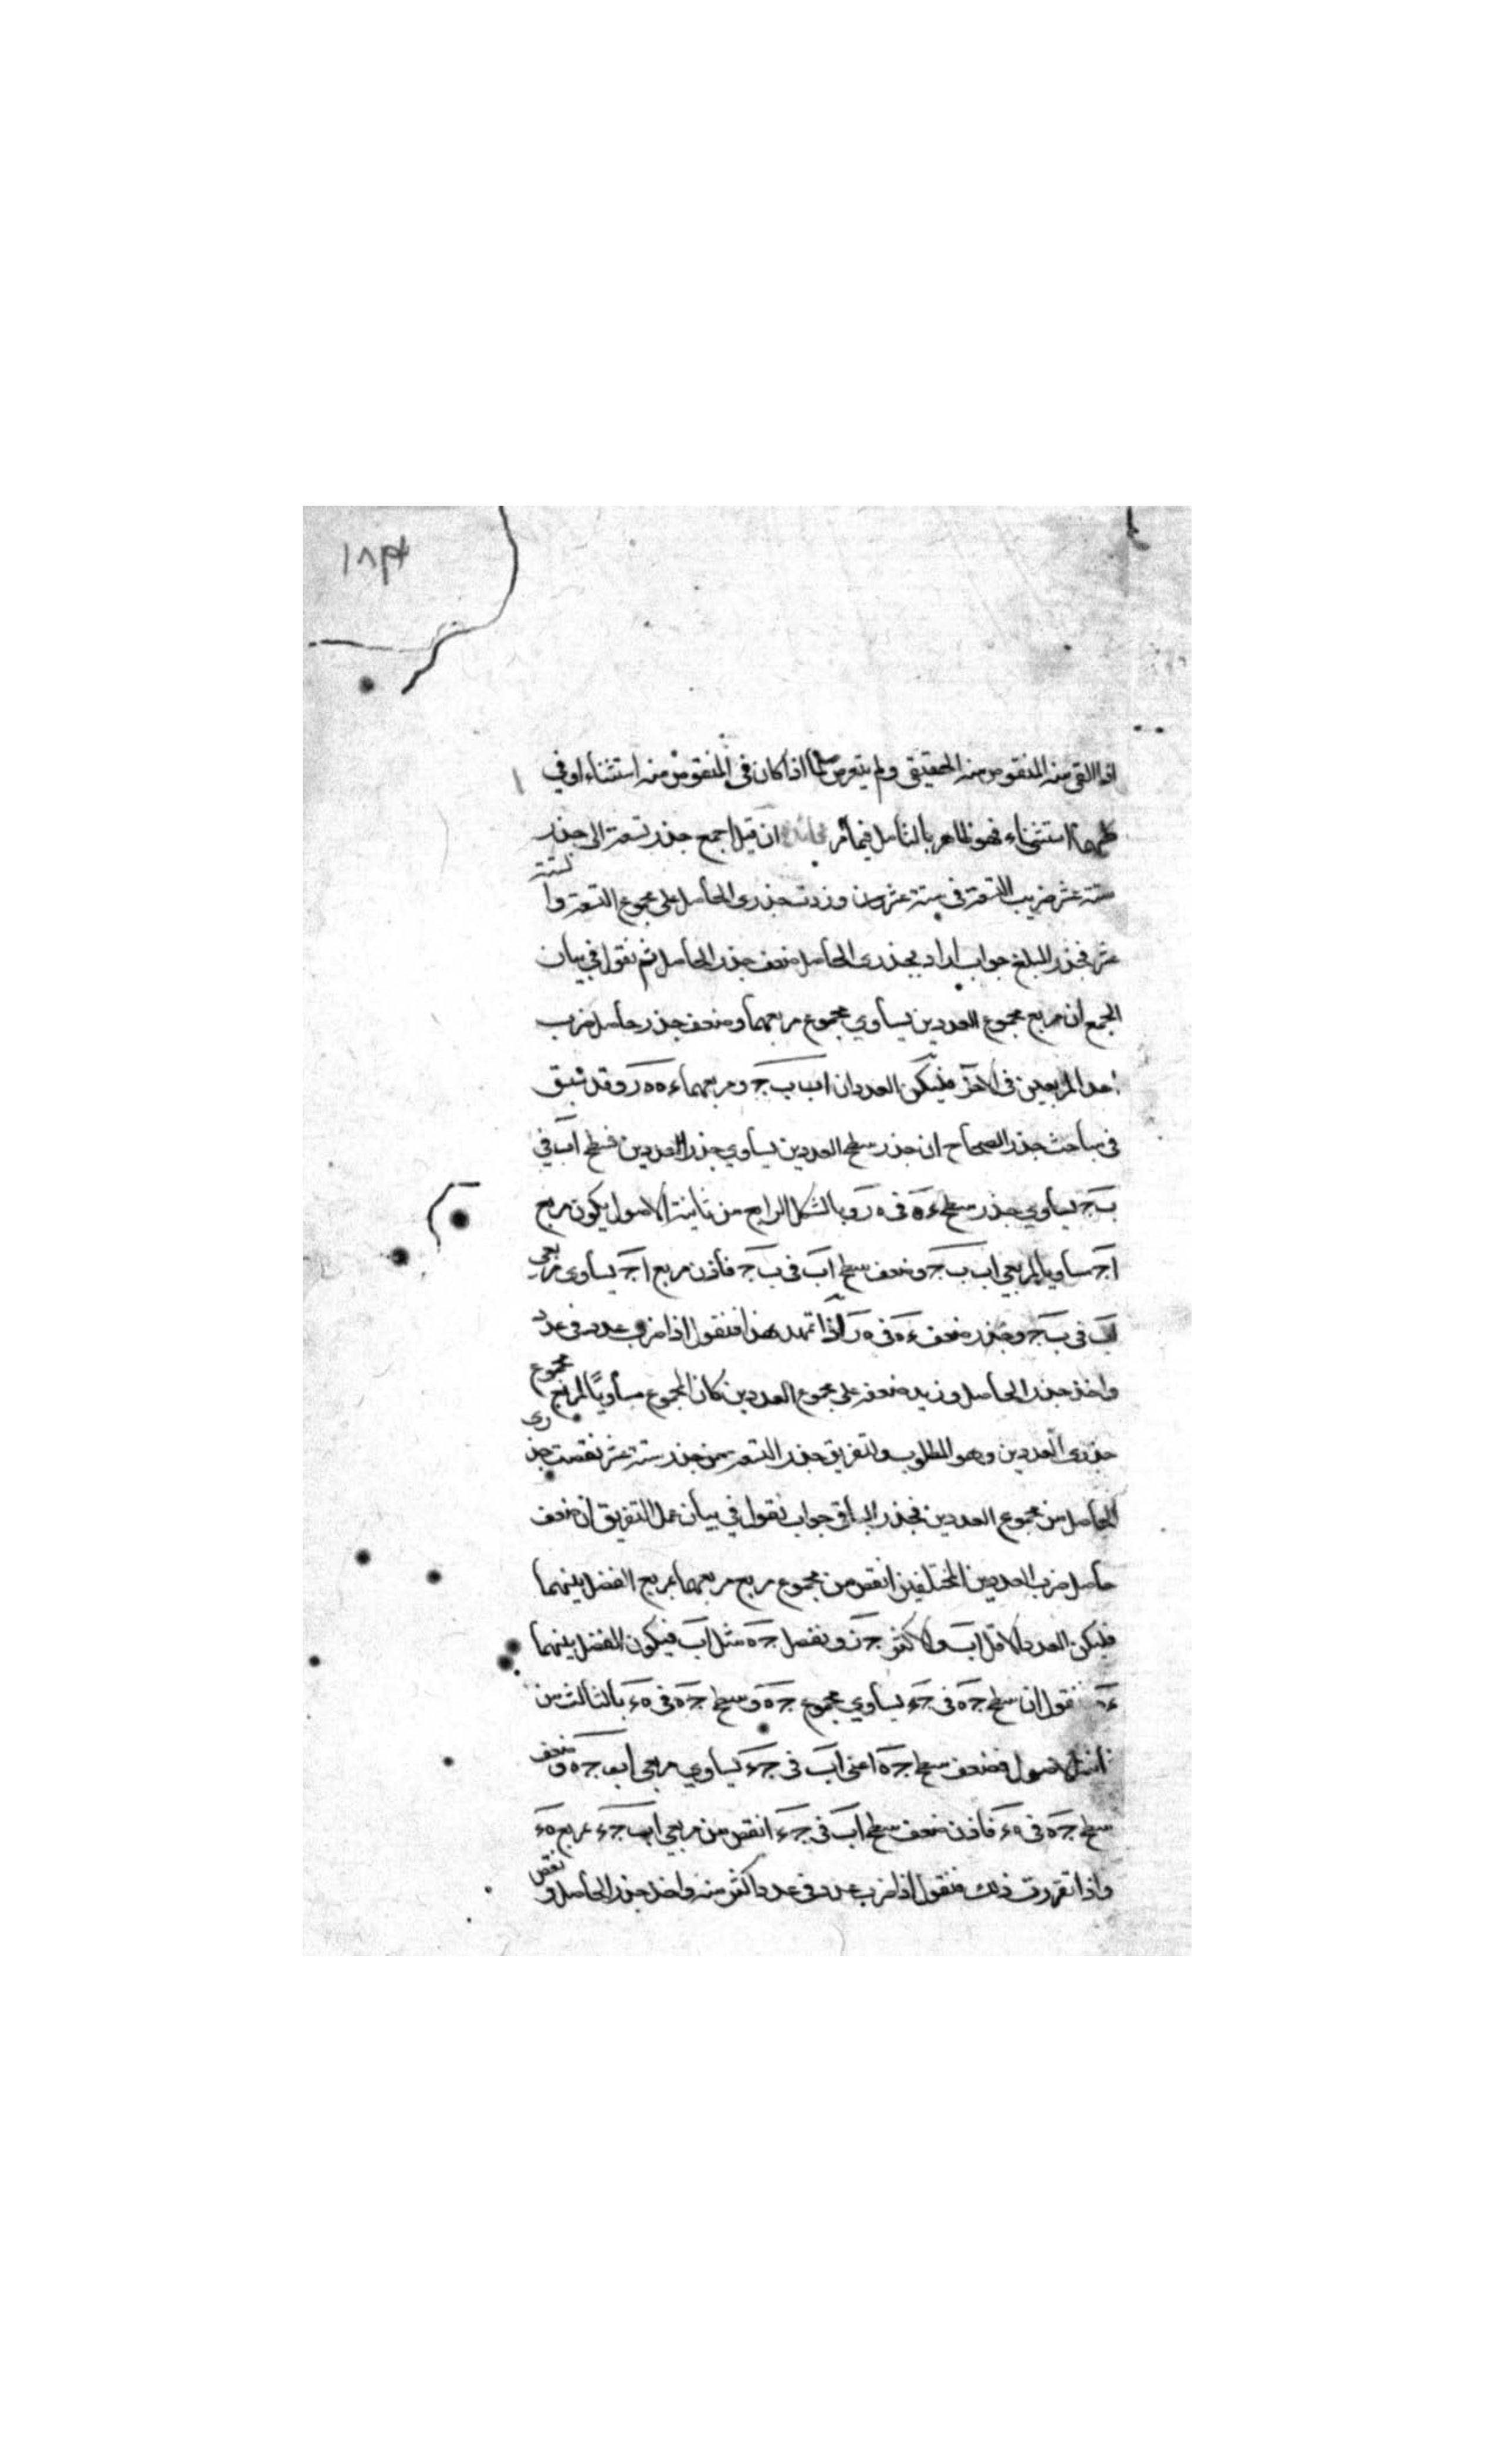 اذا القى منه المنقوص منه الحقيقى ولم يتعرض لما اذا كان فى المنقوص منه استثناء او فى
كليهما استثناء فهو ظاهر بالتأمل فيما مر ان قيل اجمع جذر تسعة الى جذر
ستة عشر ضربت التسعة فى ستة عشر وزدت جذرى الحاصل على مجموع التسعة والستة
عشر فجذر المبلغ جواب اراد بجذرى الحاصل ضعف جذر الحاصل ثم نقول فى بيان
الجمع ان مربع مجموع العددين يساوي مجموع مربعهما وضعف جذر حاصل ضرب
احد المربعين فى الآخر فليكن العددان اب ب جـ ومربعهما ءه ه ر وقد سبق
فى مباحث جذر الصحاح ان جذر سطح العددين يساوي جذر العددين فسطح اب في
ب جـ يساوي جذر سطح ءه فى ه ر وبالشكل الرابع من ثانية الاصول يكون مربع
اجـ مساويا لمربعي اب ب جـ وضعف سطح اب فى ب جـ فاذن مربع اجـ يساوى مربعى
اب فى ب جـ وجذر ضعف ءه فى ه ر اذا تمهد هذا فنقول اذا ضرب عدد فى عدد
واخذ جذر الحاصل وزيد ضعفه على مجموع العددين كان المجموع مساويًا لمربع مجموع
جذرى العددين وهو المطلوب ولتفريق جذر التسعة من جذر ستة عشر نقصت جذرى
الحاصل من مجموع العددين فجذر الباقى جواب نقول فى بيان عمل التفريق ان ضعف
حاصل ضرب العددين المختلفين انقص من مجموع مربع مربعهما بمربع الفضل بينهما
فليكن العدد الاقل اب والاكثر جـ ء ونفصل جـ ه مثل اب فيكون الفضل بينهما
ءه فنقول ان سطح جـ ه فى جـ ء يساوي مجموع جـ ه وسطح جـ ه فى ه ء بالثالث من
ثانية الاصول فضعف سطح جـ ه اعنى اب فى جـ ء يساوي مربعى اب جـ ه وضعف
سطح جـ ه فى ه ء فاذن ضعف سطح اب فى جـ ء انقص من مربعي اب جـ ء بمربع ه ء
واذا تقررت ذلك فنقول اذا ضرب عدد فى عدد اكثر منه واخذ جذر الحاصل ونقص